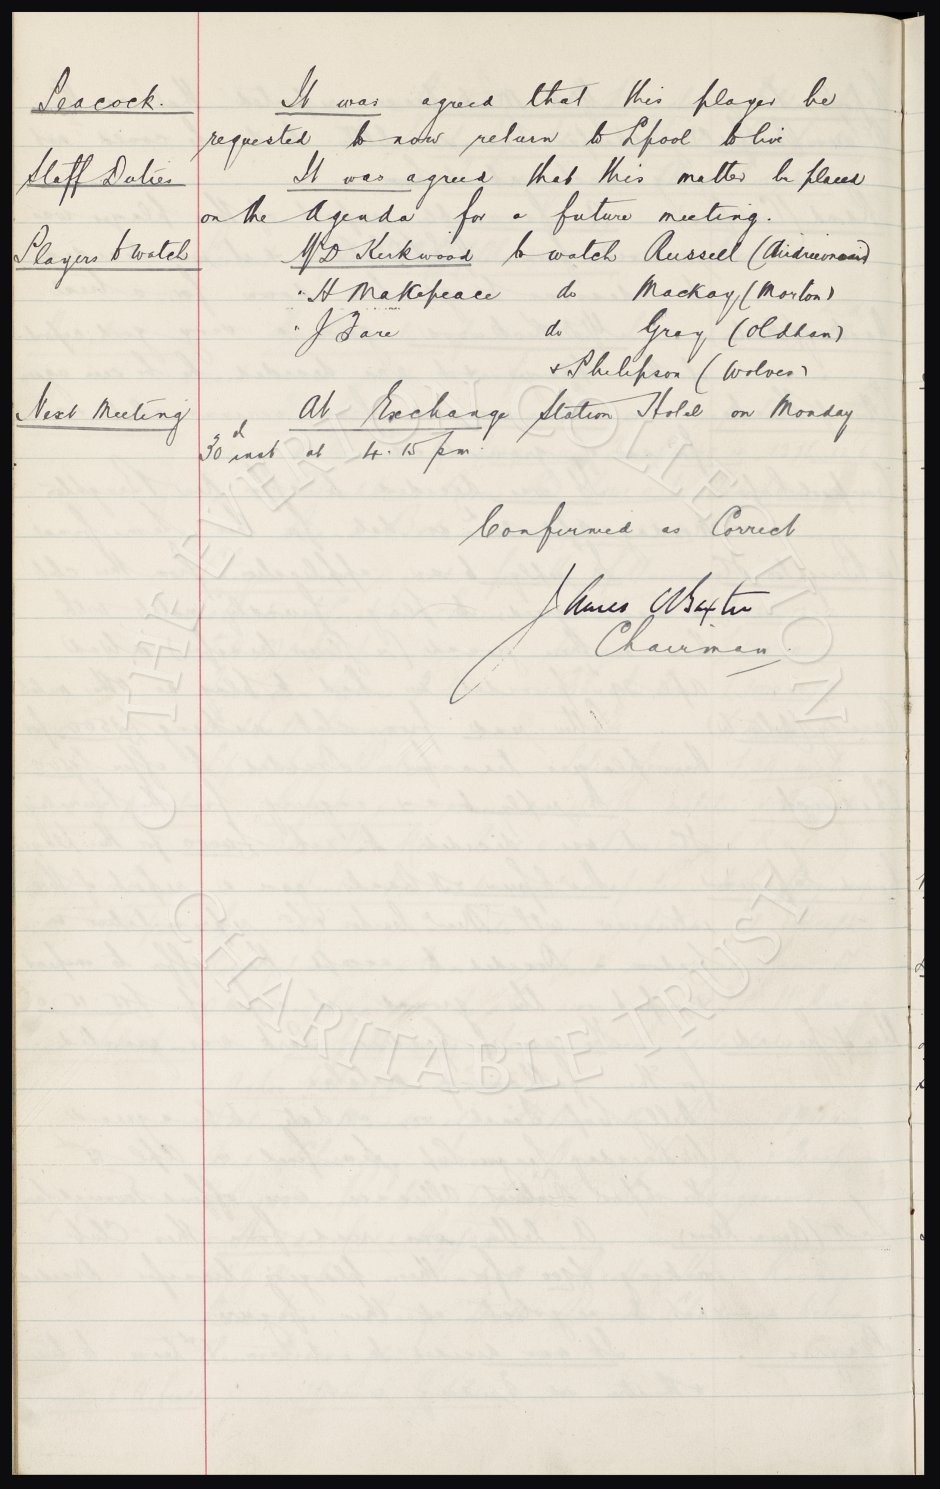 Peacock. It was agreed that this player be
requested to now return to Lpool to live
Staff Duties It was agreed that this matter be placed
on the Agenda for a future meeting.
Players to watch Mr D Kirkwood to watch Russell (Airdrieonians)
" H Makepeace do Mackay (Morton)
" J Fare do Gray (Oldham)
& Philipson (Wolves)
Next Meeting At Exchange Station Hotel on Monday
30d inst at 4.15 pm.
Confirmed as Correct
James C Baxter
Chairman.
© THE EVERTON COLLECTION
CHARITABLE TRUST